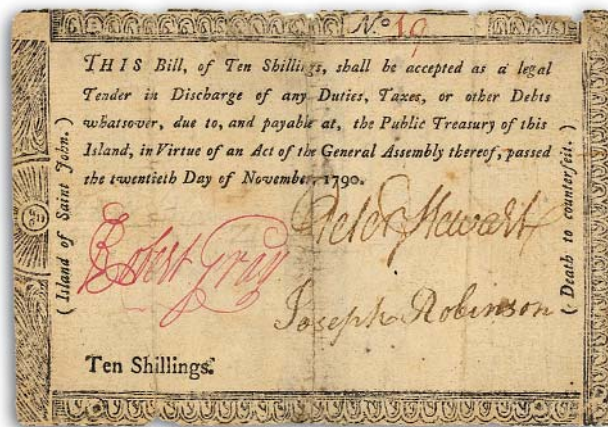 No 19
THIS Bill, of Ten Shillings, shall be accepted as a legal
Tender in Discharge of any Duties, Taxes, or other Debts
whatsover, due to, and payable at, the Public Treasury of this
Island, in Virtue of an Act of the General Assembly thereof, passed
the twentieth Day of November, 1790.
(Island of Saint John.)
Robert Gray
Peter Stewart
Joseph Robinson
(Death to counterfeit.)
Ten Shillings.